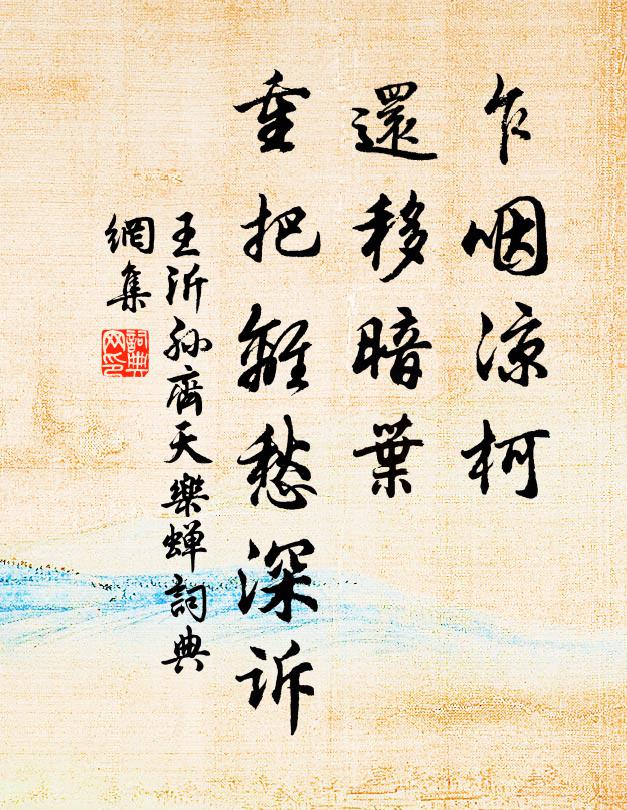 乍咽涼柯
還移暗葉
重把離愁深訴
王沂孫齊天樂蟬詞典
網集
詞典
网印